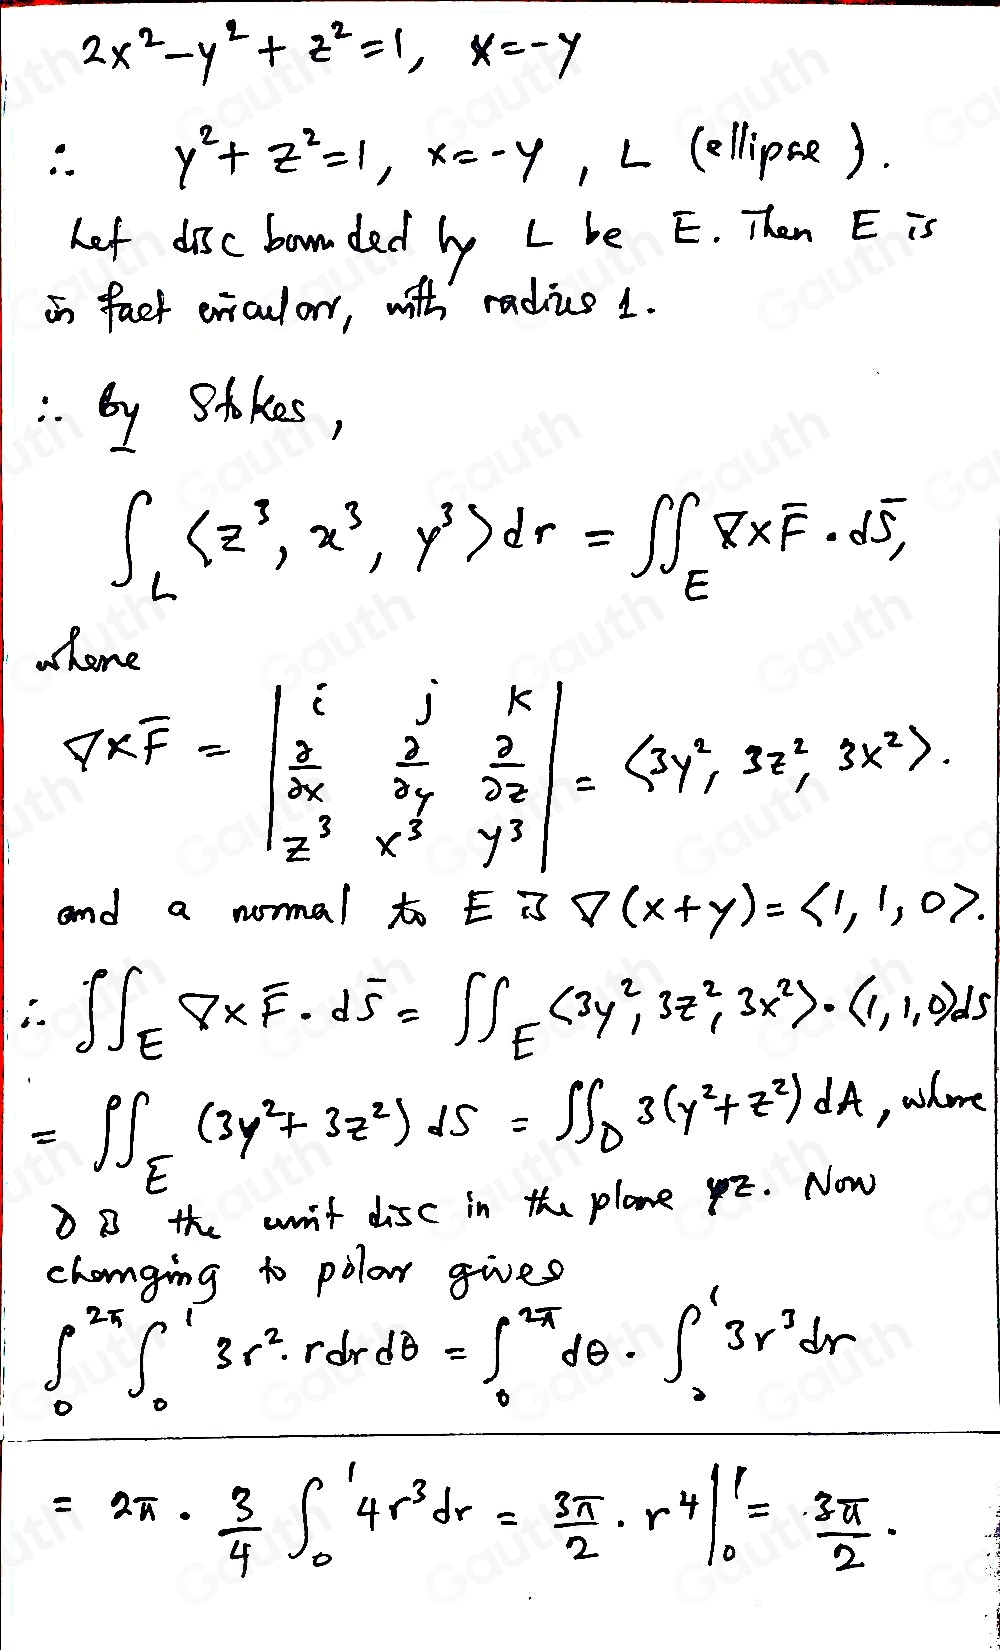 2x² - y² + z² = 1, x = -y
∴ y² + z² = 1, x = -y, L (ellipse).
Let disc bounded by L be E. Then E is
in fact circular, with radius 1.
∴ By Stokes,
∫_L ⟨z³, x³, y³⟩ dr = ∬_E ∇×F̄ · dS̄,
where
∇×F̄ = | i j k ; ∂/∂x ∂/∂y ∂/∂z ; z³ x³ y³ | = ⟨3y², 3z², 3x²⟩.
and a normal to E is ∇(x+y) = ⟨1, 1, 0⟩.
∴ ∬_E ∇×F̄ · dS̄ = ∬_E ⟨3y², 3z², 3x²⟩ · ⟨1, 1, 0⟩ dS
= ∬_E (3y² + 3z²) dS = ∬_D 3(y² + z²) dA, where
D is the unit disc in the plane yz. Now
changing to polar gives
∫_0^{2π} ∫_0^1 3r² · r dr dθ = ∫_0^{2π} dθ · ∫_0^1 3r³ dr
= 2π · 3/4 ∫_0^1 4r³ dr = 3π/2 · r⁴ |_0^1 = 3π/2.